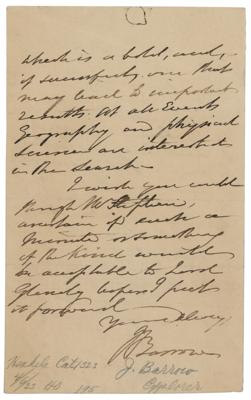 which is a bold, and,
if successful, one that
may lead to important
results. At all Events
Geography and physical
science are interested
in the search.
I wish you could
through Mr
ascertain if such a
Minute or something
of the kind would
be acceptable to Lord
Glenelg before I put
it forward
Yours
J Barrow
Cat 1323
J. Barrow
Explorer
195